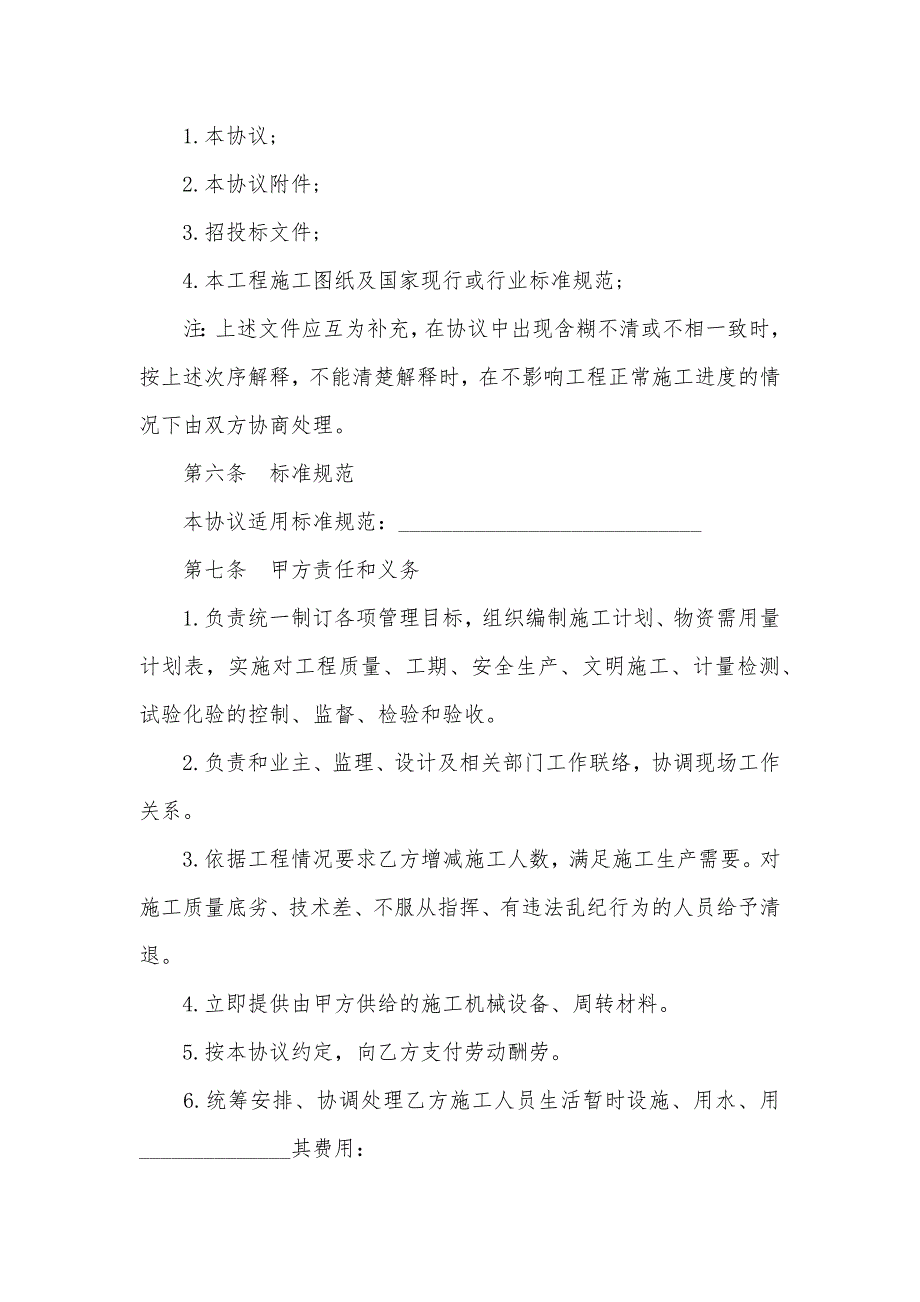 1.本协议;
2.本协议附件;
3.招投标文件;
4.本工程施工图纸及国家现行或行业标准规范;
注:上述文件应互为补充,在协议中出现含糊不清或不相一致时,
按上述次序解释,不能清楚解释时,在不影响工程正常施工进度的情
况下由双方协商处理。
第六条　标准规范
本协议适用标准规范:___________________________
第七条　甲方责任和义务
1.负责统一制订各项管理目标,组织编制施工计划、物资需用量
计划表,实施对工程质量、工期、安全生产、文明施工、计量检测、
试验化验的控制、监督、检验和验收。
2.负责和业主、监理、设计及相关部门工作联络,协调现场工作
关系。
3.依据工程情况要求乙方增减施工人数,满足施工生产需要。对
施工质量底劣、技术差、不服从指挥、有违法乱纪行为的人员给予清
退。
4.立即提供由甲方供给的施工机械设备、周转材料。
5.按本协议约定,向乙方支付劳动酬劳。
6.统筹安排、协调处理乙方施工人员生活暂时设施、用水、用
______________其费用: